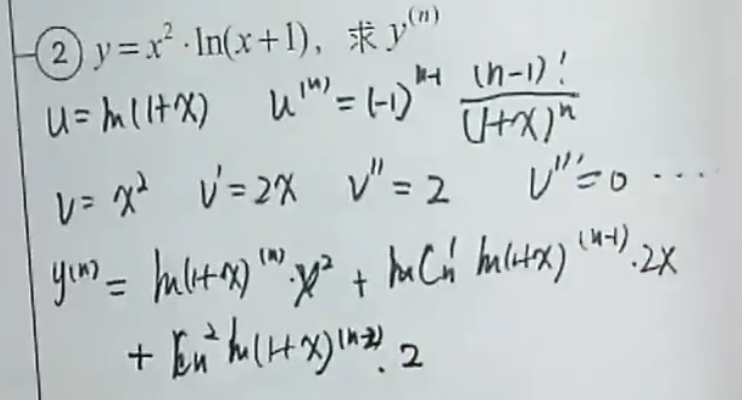 ② y=x²·ln(x+1), 求 y⁽ⁿ⁾
u=ln(1+x) u⁽ⁿ⁾=(-1)ⁿ⁻¹ (n-1)!/(1+x)ⁿ
v=x² v'=2x v''=2 v'''=0 ····
y⁽ⁿ⁾=ln(1+x)⁽ⁿ⁾·x²+ln Cn¹ ln(1+x)⁽ⁿ⁻¹⁾·2x
+Cn² ln(1+x)⁽ⁿ⁻²⁾·2